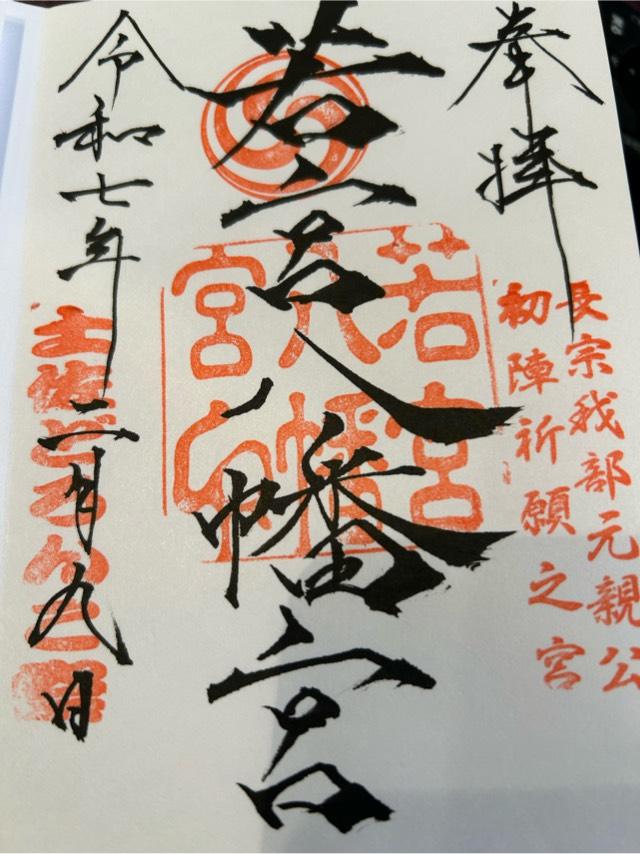 奉拝
長宗我部元親公
初陣祈願之宮
若宮八幡宮
若宮
八幡
宮印
令和七年二月九日
土佐どろんこ祭